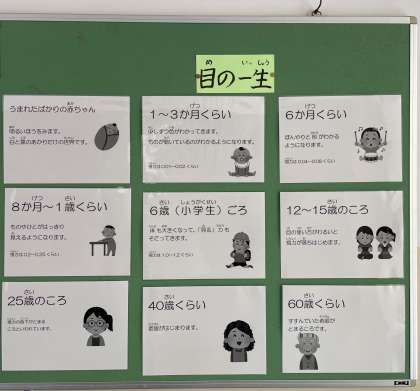 目の一生
うまれたばかりの赤ちゃん
明るいほうをみます。
白と黒のあかりだけの世界です。
1～3か月くらい
少しずつ色がわかってきます。
ものが動いているのがわかるようになります。
視力は0.01～0.02くらい
6か月くらい
ぼんやりと形がわかる
ようになります。
視力は0.04～0.08くらい
8か月～1歳くらい
ものやひとがはっきり
見えるようになります。
視力は0.2～0.25くらい
6歳（小学生）ごろ
体も大きくなって、「見る」力も
そだってきます。
視力は1.0～1.2くらい
12～15歳のころ
目の使い方がわるいと
視力が落ちはじめます。
25歳のころ
視力の低下がとまる
ころといわれています。
40歳くらい
老眼がはじまります。
60歳くらい
すすんでいた老眼が
とまるころです。